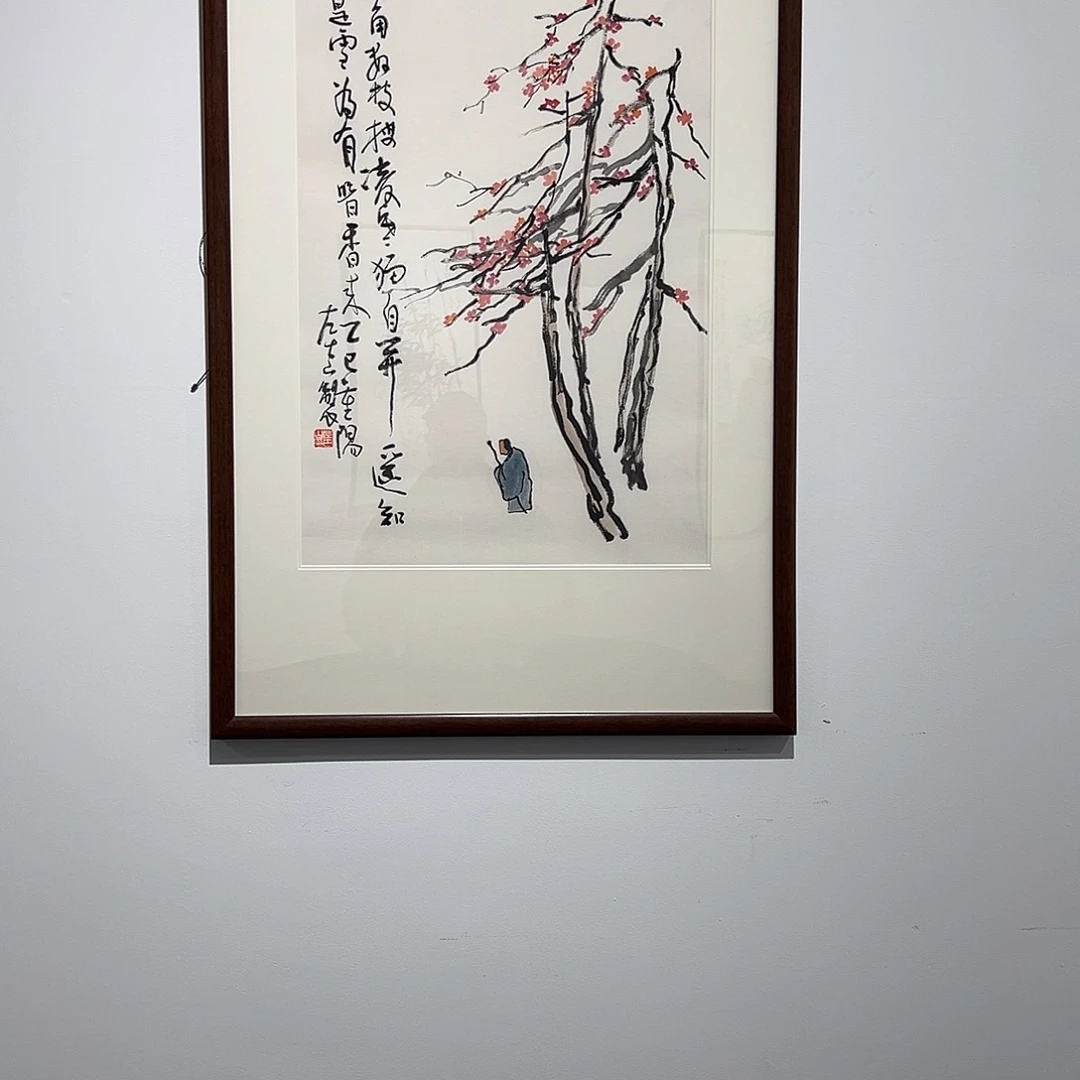 角数枝梅凌寒独自开遥知
是雪为有暗香来乙巳重陽